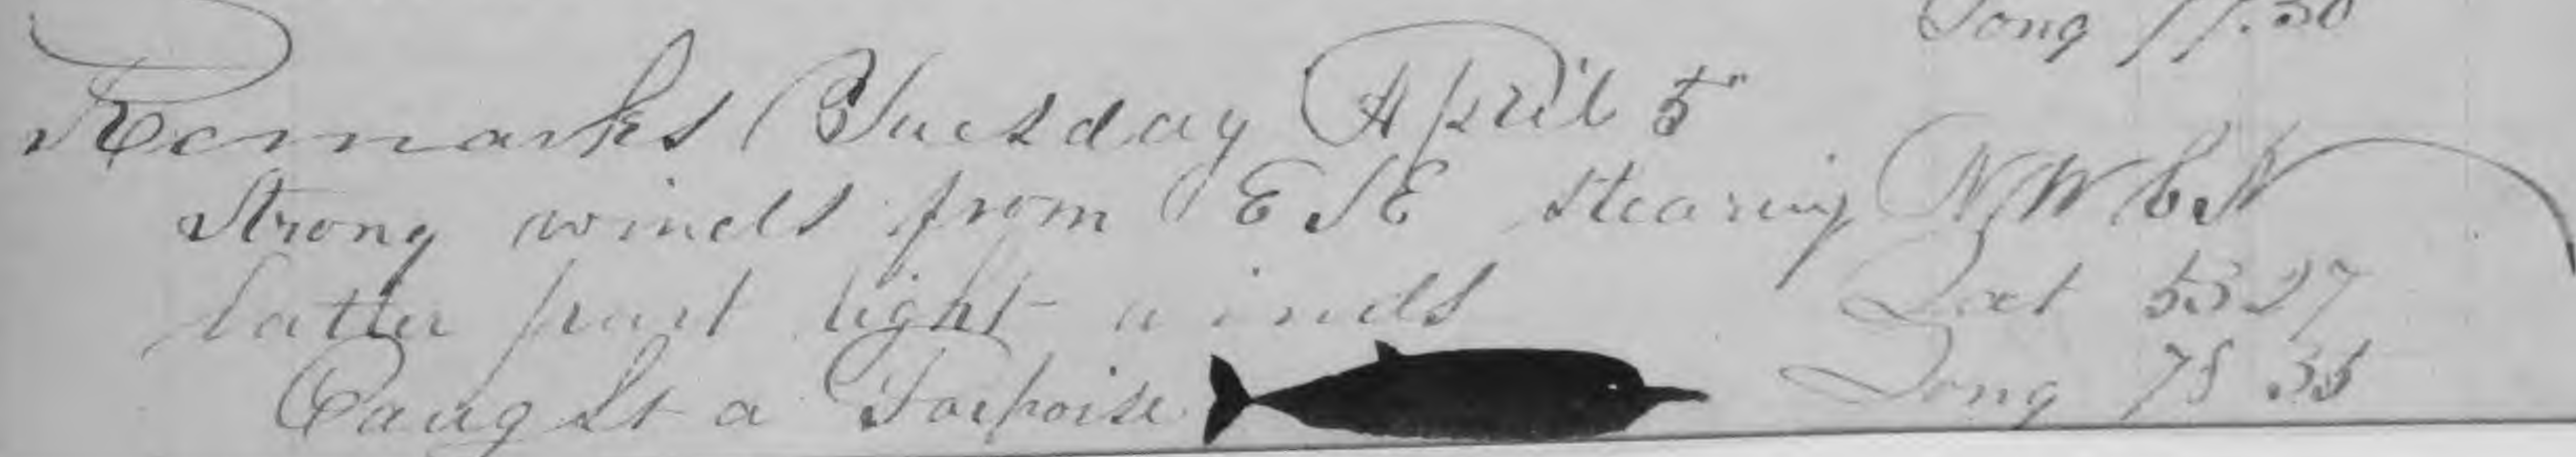 Long 77.50
Remarks Tuesday April 5"
Strong winds from ESE stearing NW b N
latter part light winds Lat 53 27
Caught a Porpoise Long 78 35